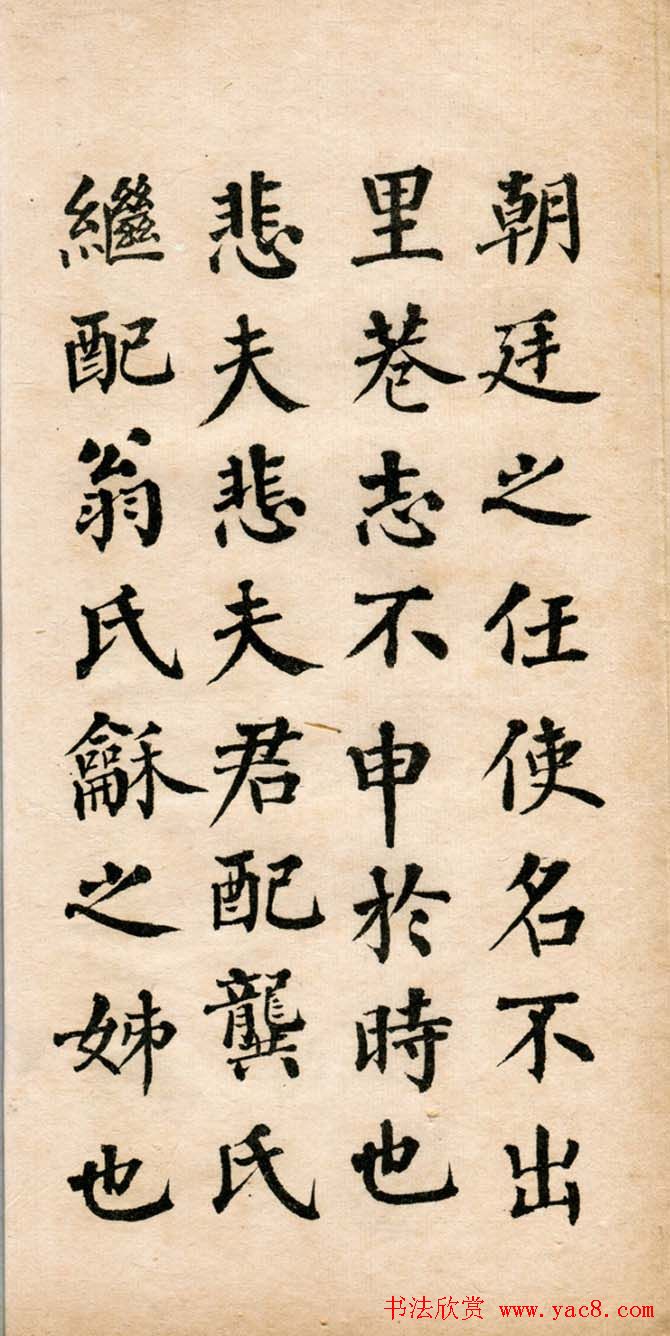 朝廷之任使名不出
里巷志不申於時也
悲夫悲夫君配龔氏
繼配翁氏龢之姊也
书法欣赏 www.yac8.com